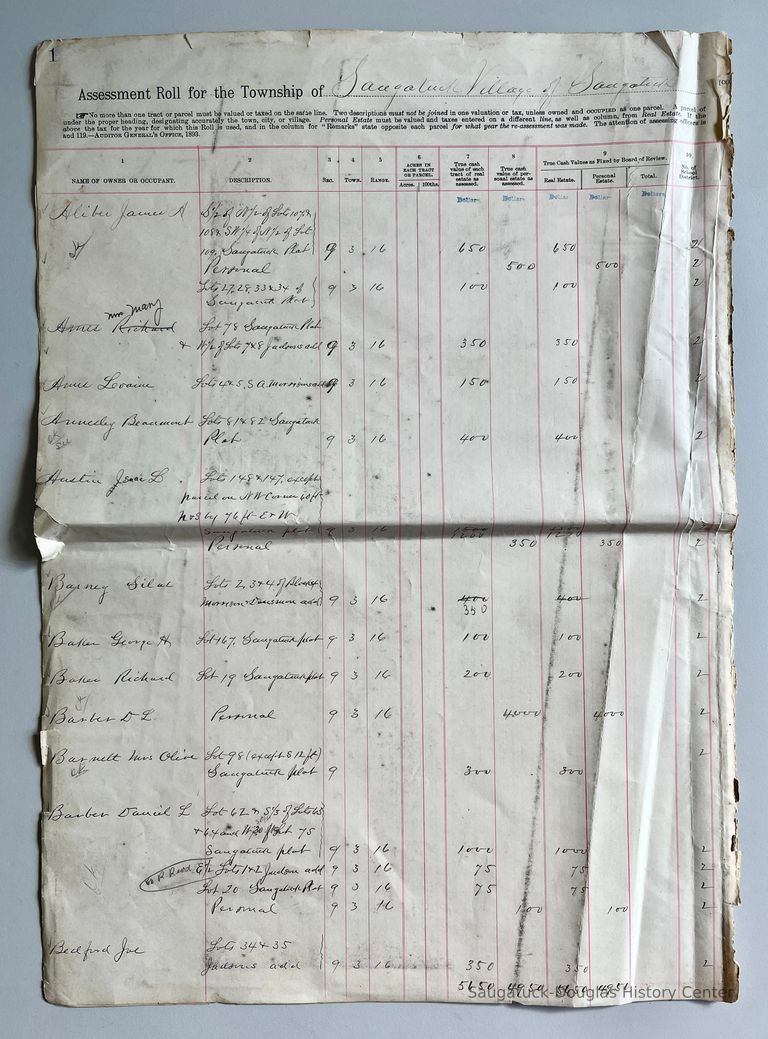 1
Assessment Roll for the Township of Saugatuck Village of Saugatuck
No more than one tract or parcel must be valued or taxed on the same line. Two descriptions must not be joined in one valuation or tax, unless owned and occupied as one parcel. A parcel of
under the proper heading, designating accurately the town, city, or village. Personal Estate must be valued and taxes entered on a different line, as well as column, from Real Estate. If the
above the tax for the year for which this Roll is used, and in the column for "Remarks" state opposite each parcel for what year the re-assessment was made. The attention of assessing officers is
and 119.—AUDITOR GENERAL'S OFFICE, 1893.
1 2 3 4 5 6 7 8 9 10
NAME OF OWNER OR OCCUPANT. DESCRIPTION. SEC. TOWN. RANGE. ACRES IN EACH TRACT OR PARCEL. Acres. 100ths. True cash value of each tract of real estate as assessed. True cash value of personal estate as assessed. True Cash Values as Fixed by Board of Review. Real Estate. Personal Estate. Total. No. of School District.
Dollars Dollars Dollars Dollars Dollars
Aliber James A S 1/2 of N 1/2 of Lots 107 &
108 & SW 1/4 of N 1/2 of Lot
109, Saugatuck Plat 9 3 16 650 650 2
Personal 500 500 2
Lots 27, 28, 33 & 34 of 9 3 16 100 100 2
Saugatuck Plat
Mrs Mary
Ames Richard Lot 78 Saugatuck Plat
& N 1/2 of Lots 7 & 8 Judsons add 9 3 16 350 350 2
Ames Levaine Lots 4 & 5, S A Morrisons add 9 3 16 150 150 2
Annesley Beaumont Lots 81 & 82 Saugatuck
Plat 9 3 16 400 400 2
Austin Isaac L Lots 148 & 147, except
parcel on NW Corner 60 ft
N & S by 76 ft E & W
Saugatuck plat 9 3 16 1200 1200
Personal 350 350 2
Barney Silas Lots 2, 3 & 4 of
Morrison add 9 3 16 400 400 2
350
Baker George H Lot 167, Saugatuck plat 9 3 16 100 100 2
Baker Richard Lot 19 Saugatuck plat 9 3 16 200 200 2
Barber D L Personal 9 3 16 4000 4000 2
Barnett Mrs Olive Lot 98 (except S 12 ft) 2
Saugatuck plat 9 300 300
Barber Daniel L Lot 62 & S 1/3 of Lots 63
& 64 and W 30 ft Lot 75
Saugatuck plat 9 3 16 1000 1000 2
E 1/2 Lots 1 & 2 Judson add 9 3 16 75 75 2
Lot 20 Saugatuck Plat 9 3 16 75 75 2
Personal 9 3 16 100 100 2
Bedford Joe Lots 34 & 35
Judsons add 9 3 16 350 350 2
5650 4950 5650 4950
Saugatuck-Douglas History Center